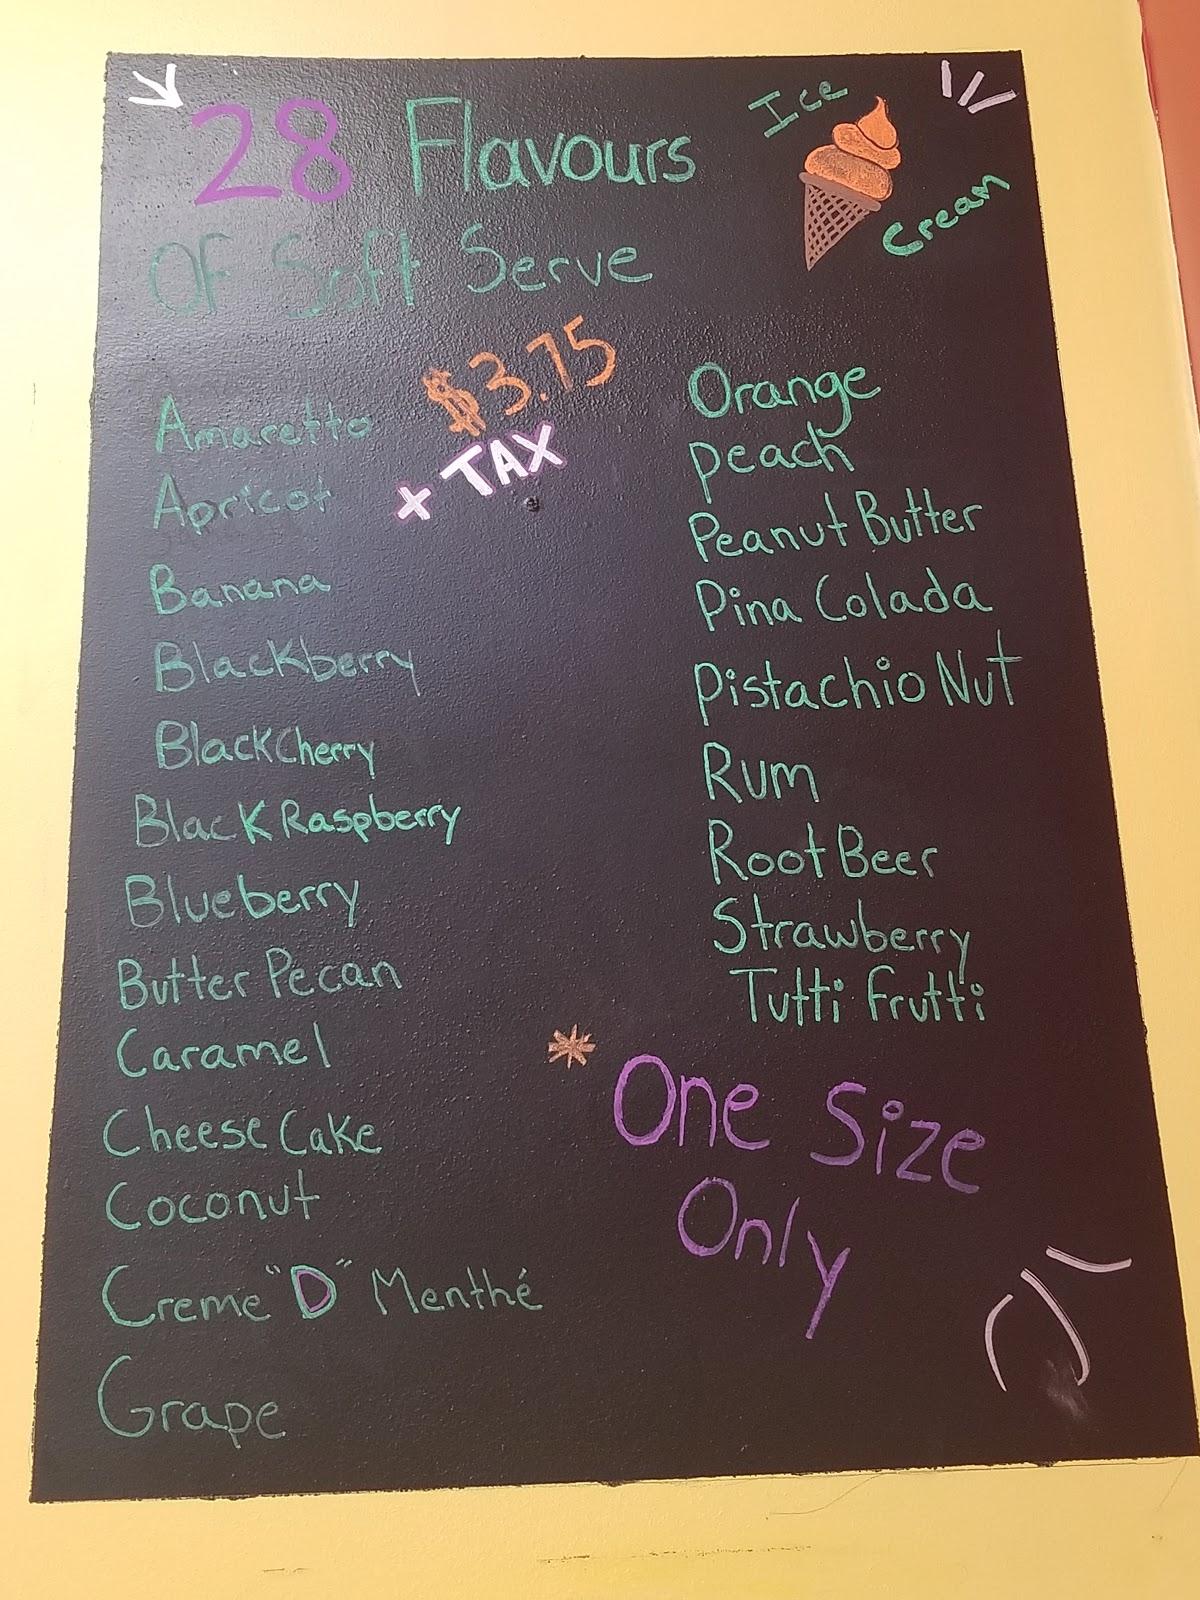 28 Flavours
Of Soft Serve
Ice
Cream
$3.75
+ TAX
Amaretto
Apricot
Banana
Blackberry
Black Cherry
Black Raspberry
Blueberry
Butter Pecan
Caramel
Cheese Cake
Coconut
Creme "D" Menthé
Grape
Orange
Peach
Peanut Butter
Pina Colada
Pistachio Nut
Rum
Root Beer
Strawberry
Tutti Frutti
* One Size
Only